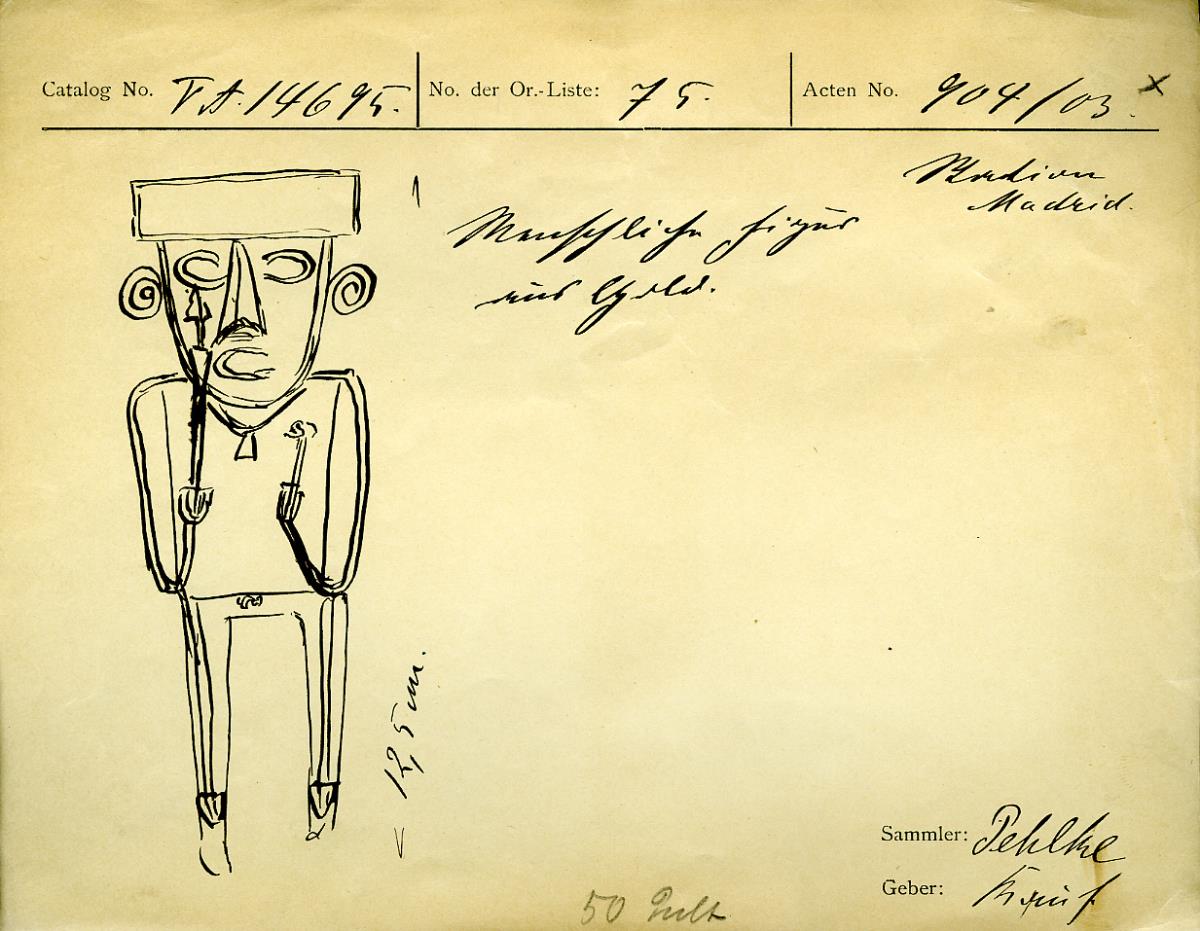 Catalog No. VA.14695. No. der Or.-Liste: 75. Acten No. 904/03. x
Station
Madrid.
Menschliche Figur
aus Gold.
12,5 cm.
Sammler: Pehlke
Geber: Kauf
50